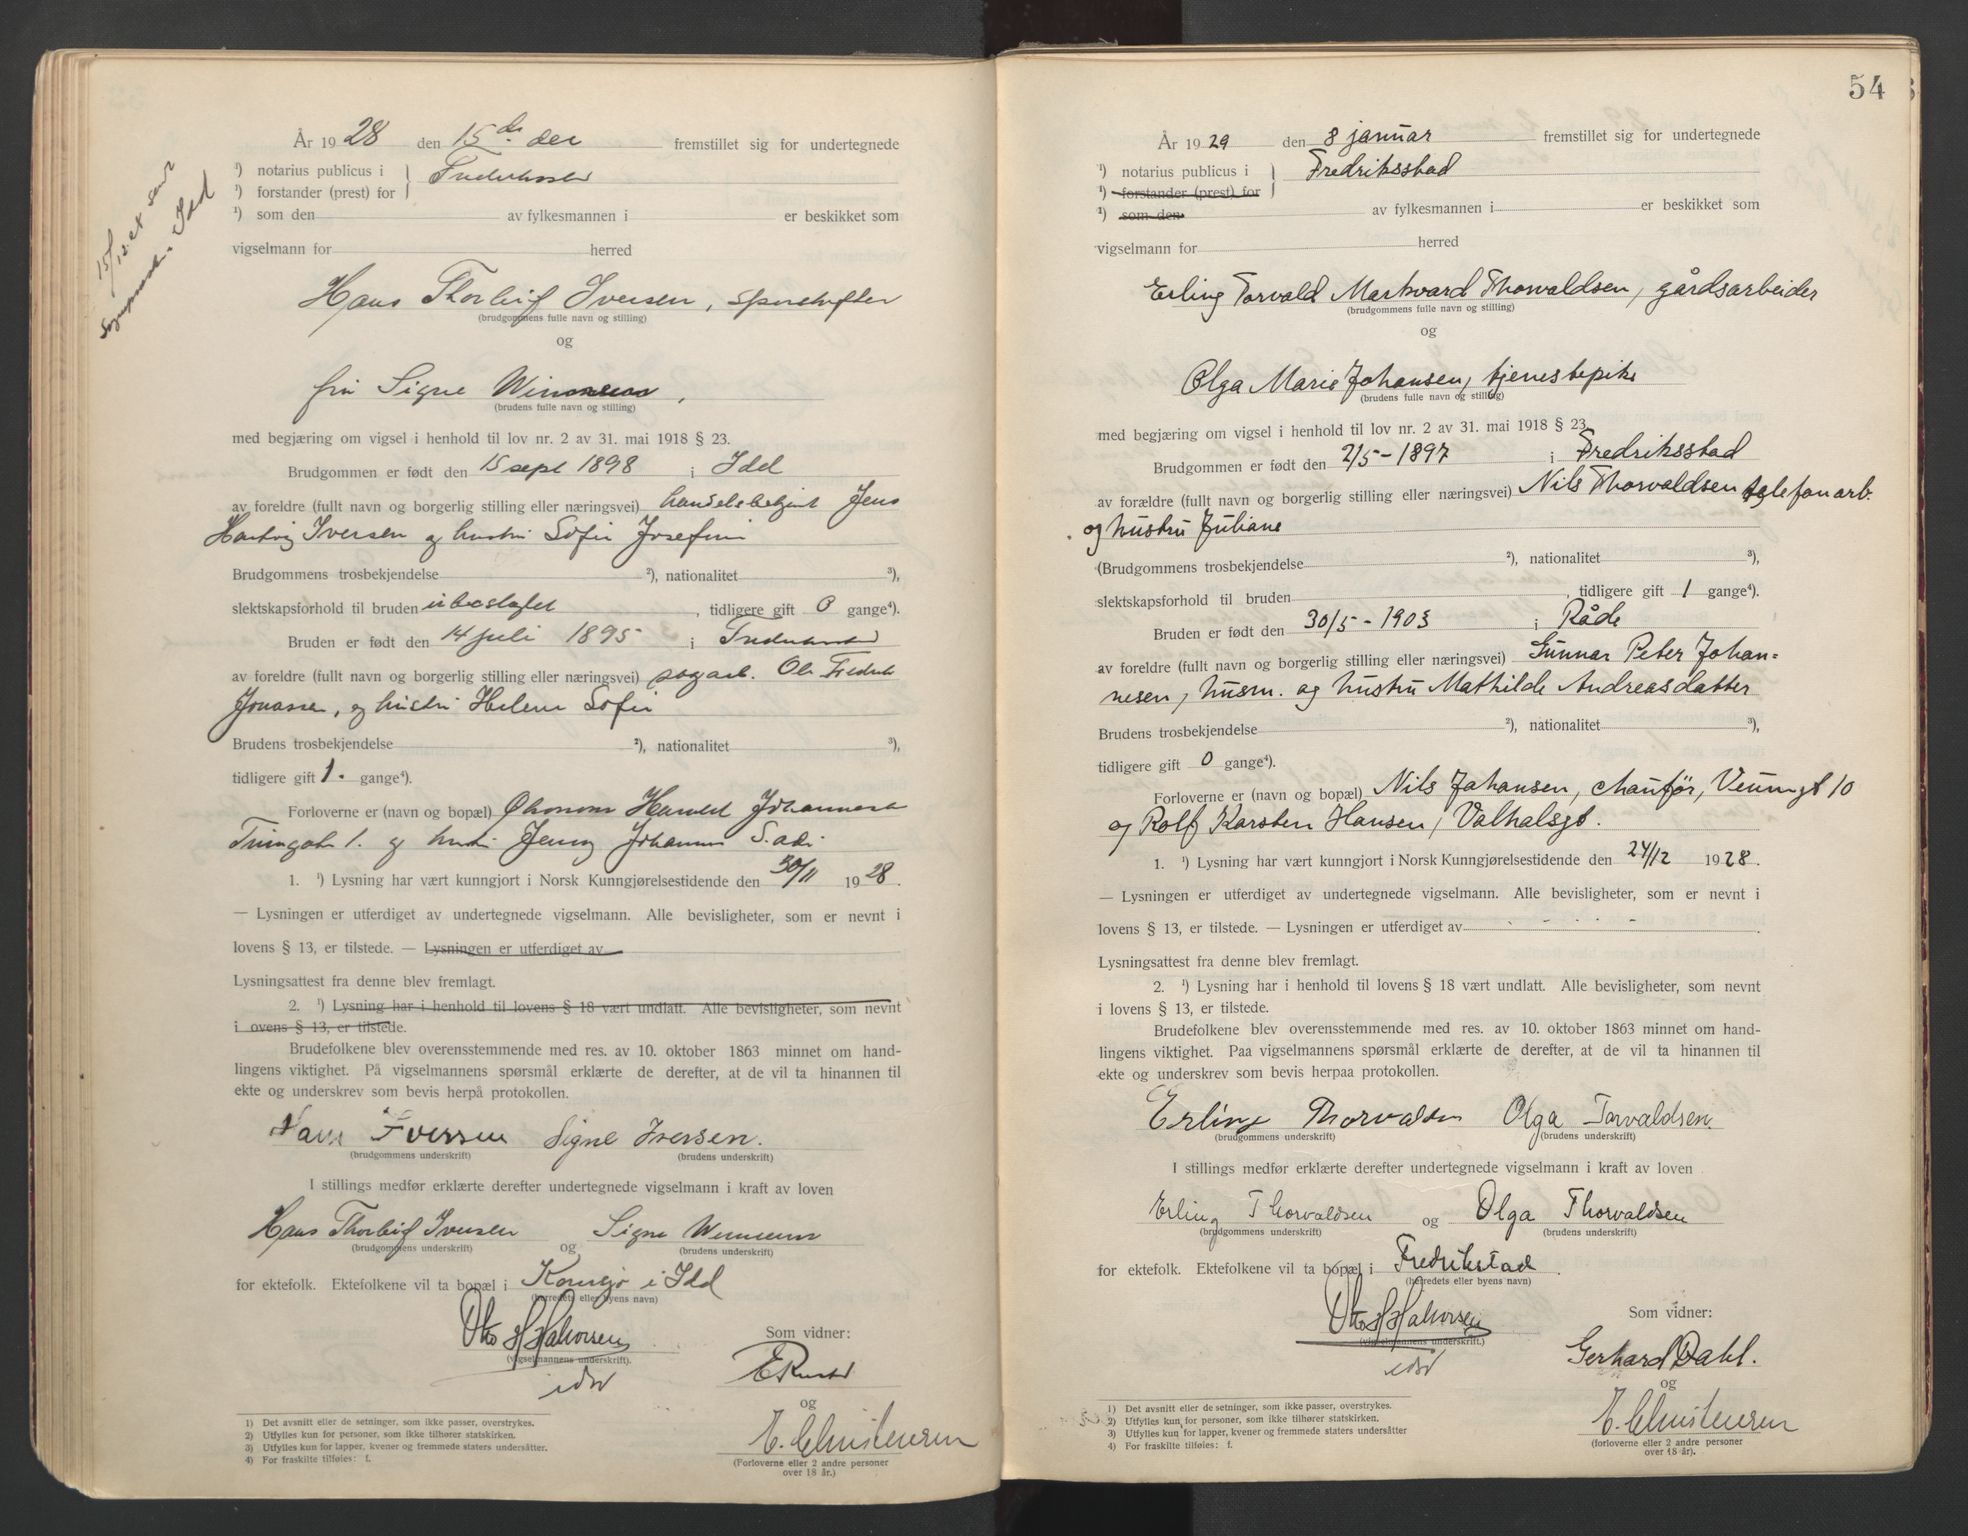 15/12 et
Sogneprest i Idd
År 1928 den 15de des fremstillet sig for undertegnede
¹) notarius publicus i
¹) forstander (prest) for
¹) som den av fylkesmannen i er beskikket som
vigselmann for herred
Hans Thorleif Iversen,
(brudgommens fulle navn og stilling)
og
fru Signe
(brudens fulle navn og stilling)
med begjæring om vigsel i henhold til lov nr. 2 av 31. mai 1918 § 23.
Brudgommen er født den 15 sept 1898 i Idd
av foreldre (fullt navn og borgerlig stilling eller næringsvei) handelsbetjent Jens
Hartvig Iversen og hustru Sofie Josefine
Brudgommens trosbekjendelse ²), nationalitet ³),
slektskapsforhold til bruden ubeslegtet, tidligere gift 0 gange⁴).
Bruden er født den 14 juli 1895 i
av foreldre (fullt navn og borgerlig stilling eller næringsvei) sagarb. Ole Fredrik
Jonassen, og hustru Helene Sofie
Brudens trosbekjendelse ²), nationalitet ³),
tidligere gift 1. gange⁴).
Forloverne er (navn og bopæl) Harald
1. og hustru Jenny
1. ¹) Lysning har vært kunngjort i Norsk Kunngjørelsestidende den 30/11 1928.
— Lysningen er utferdiget av undertegnede vigselmann. Alle bevisligheter, som er nevnt i
lovens § 13, er tilstede. — Lysningen er utferdiget av
Lysningsattest fra denne blev fremlagt.
2. ¹) Lysning har i henhold til lovens § 18 vært undlatt. Alle bevisligheter, som nevnt
i ovens § 13, er tilstede.
Brudefolkene blev overensstemmende med res. av 10. oktober 1863 minnet om hand-
lingens viktighet. På vigselmannens spørsmål erklærte de derefter, at de vil ta hinannen til
ekte og underskrev som bevis herpå protokollen.
Hans Iversen Signe Iversen.
(brudgommens underskrift) (brudens underskrift)
I stillings medfør erklærte derefter undertegnede vigselmann i kraft av loven
Hans Thorleif Iversen Signe
(brudgommens underskrift) og (brudens underskrift)
for ektefolk. Ektefolkene vil ta bopæl i Kornsjø i Idd
(herredets eller byens navn)
Otto H Halvorsen Som vidner:
(vigselmannens underskrift).
og
E. Christensen
(Forloverne eller 2 andre personer
over 18 år.)
1) Det avsnitt eller de setninger, som ikke passer, overstrykes.
2) Utfylles kun for personer, som ikke tilhører statskirken.
3) Utfylles kun for lapper, kvener og fremmede staters undersåtter.
4) For fraskilte tilføies: f.
54
År 1929 den 8 januar fremstillet sig for undertegnede
¹) notarius publicus i Fredriksstad
¹) forstander (prest) for
¹) som den av fylkesmannen i er beskikket som
vigselmann for herred
Erling Torvald Markvard Thorvaldsen, gårdsarbeider
(brudgommens fulle navn og stilling)
og
Olga Marie Johansen, tjenestepike
(brudens fulle navn og stilling)
med begjæring om vigsel i henhold til lov nr. 2 av 31. mai 1918 § 23.
Brudgommen er født den 2/5 - 1897 i Fredriksstad
av forældre (fullt navn og borgerlig stilling eller næringsvei) Nils Thorvaldsen telefonarb.
og hustru Juliane
(Brudgommens trosbekjendelse ²), nationalitet ³),
slektskapsforhold til bruden, tidligere gift 1 gange⁴).
Bruden er født den 30/5 - 1903 i Råde
av foreldre (fullt navn og borgerlig stilling eller næringsvei) Gunnar Peter Johan=
nesen, husm. og hustru Mathilde Andreasdatter
Brudens trosbekjendelse ²), nationalitet ³),
tidligere gift 0 gange⁴).
Forloverne er (navn og bopæl) Nils Johansen, chauför, 10
og Rolf Karsten Hansen, Valhalsgt.
1. ¹) Lysning har vært kunngjort i Norsk Kunngjørelsestidende den 24/12 1928.
— Lysningen er utferdiget av undertegnede vigselmann. Alle bevisligheter, som er nevnt i
lovens § 13, er tilstede. — Lysningen er utferdiget av
Lysningsattest fra denne blev fremlagt.
2. ¹) Lysning har i henhold til lovens § 18 vært undlatt. Alle bevisligheter, som nevnt
i lovens § 13, er tilstede.
Brudefolkene blev overensstemmende med res. av 10. oktober 1863 minnet om hand-
lingens viktighet. Paa vigselmannens spørsmål erklærte de derefter, at de vil ta hinannen til
ekte og underskrev som bevis herpaa protokollen.
Erling Thorvaldsen Olga Torvaldsen.
(brudgommens underskrift) (brudens underskrift)
I stillings medfør erklærte derefter undertegnede vigselmann i kraft av loven
Erling Thorvaldsen og Olga Thorvaldsen
(brudgommens underskrift) (brudens underskrift)
for ektefolk. Ektefolkene vil ta bopæl i Fredrikstad
(herredets eller byens navn)
Otto H Halvorsen Som vidner:
(vigselmannens underskrift.)
Gerhard Dahl.
og
E. Christensen
(forloverne eller 2 andre personer
over 18 år).
1) Det avsnitt eller de setninger, som ikke passer, overstrykes.
2) Utfylles kun for personer, som ikke tilhører statskirken.
3) Utfylles kun for lapper, kvener og fremmede staters undersåtter
4) For fraskilte tilføies: f.